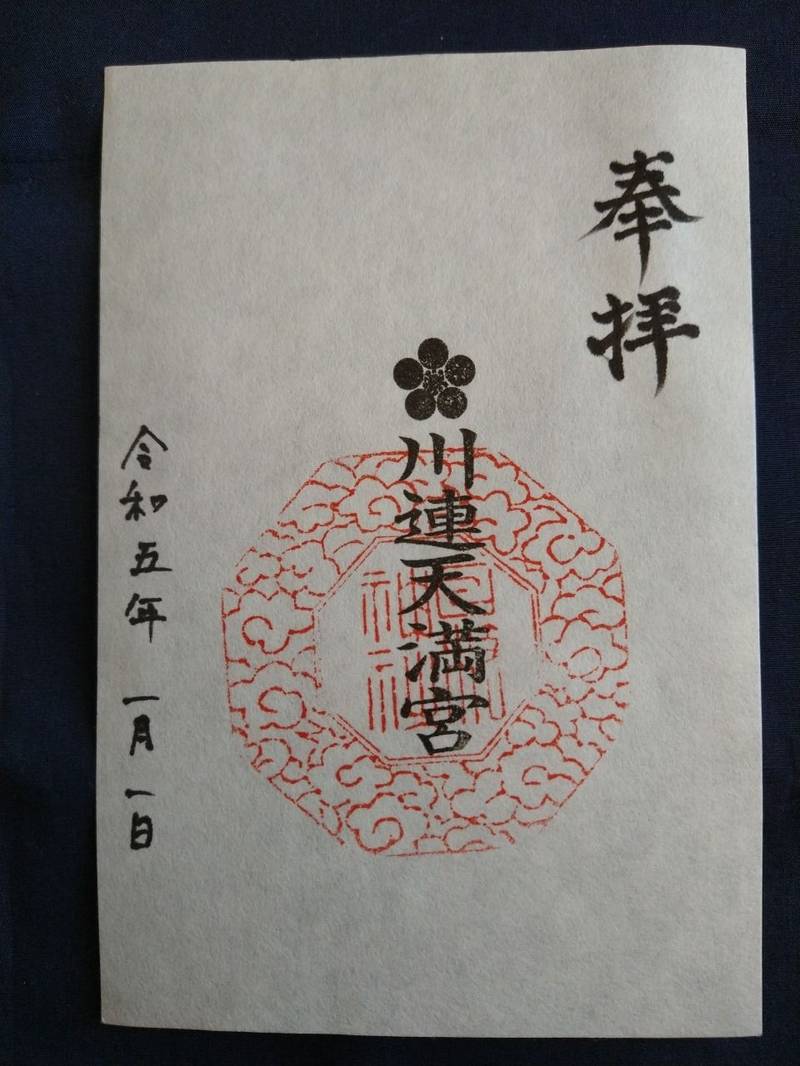 奉拝
川連天満宮
令和五年 一月一日